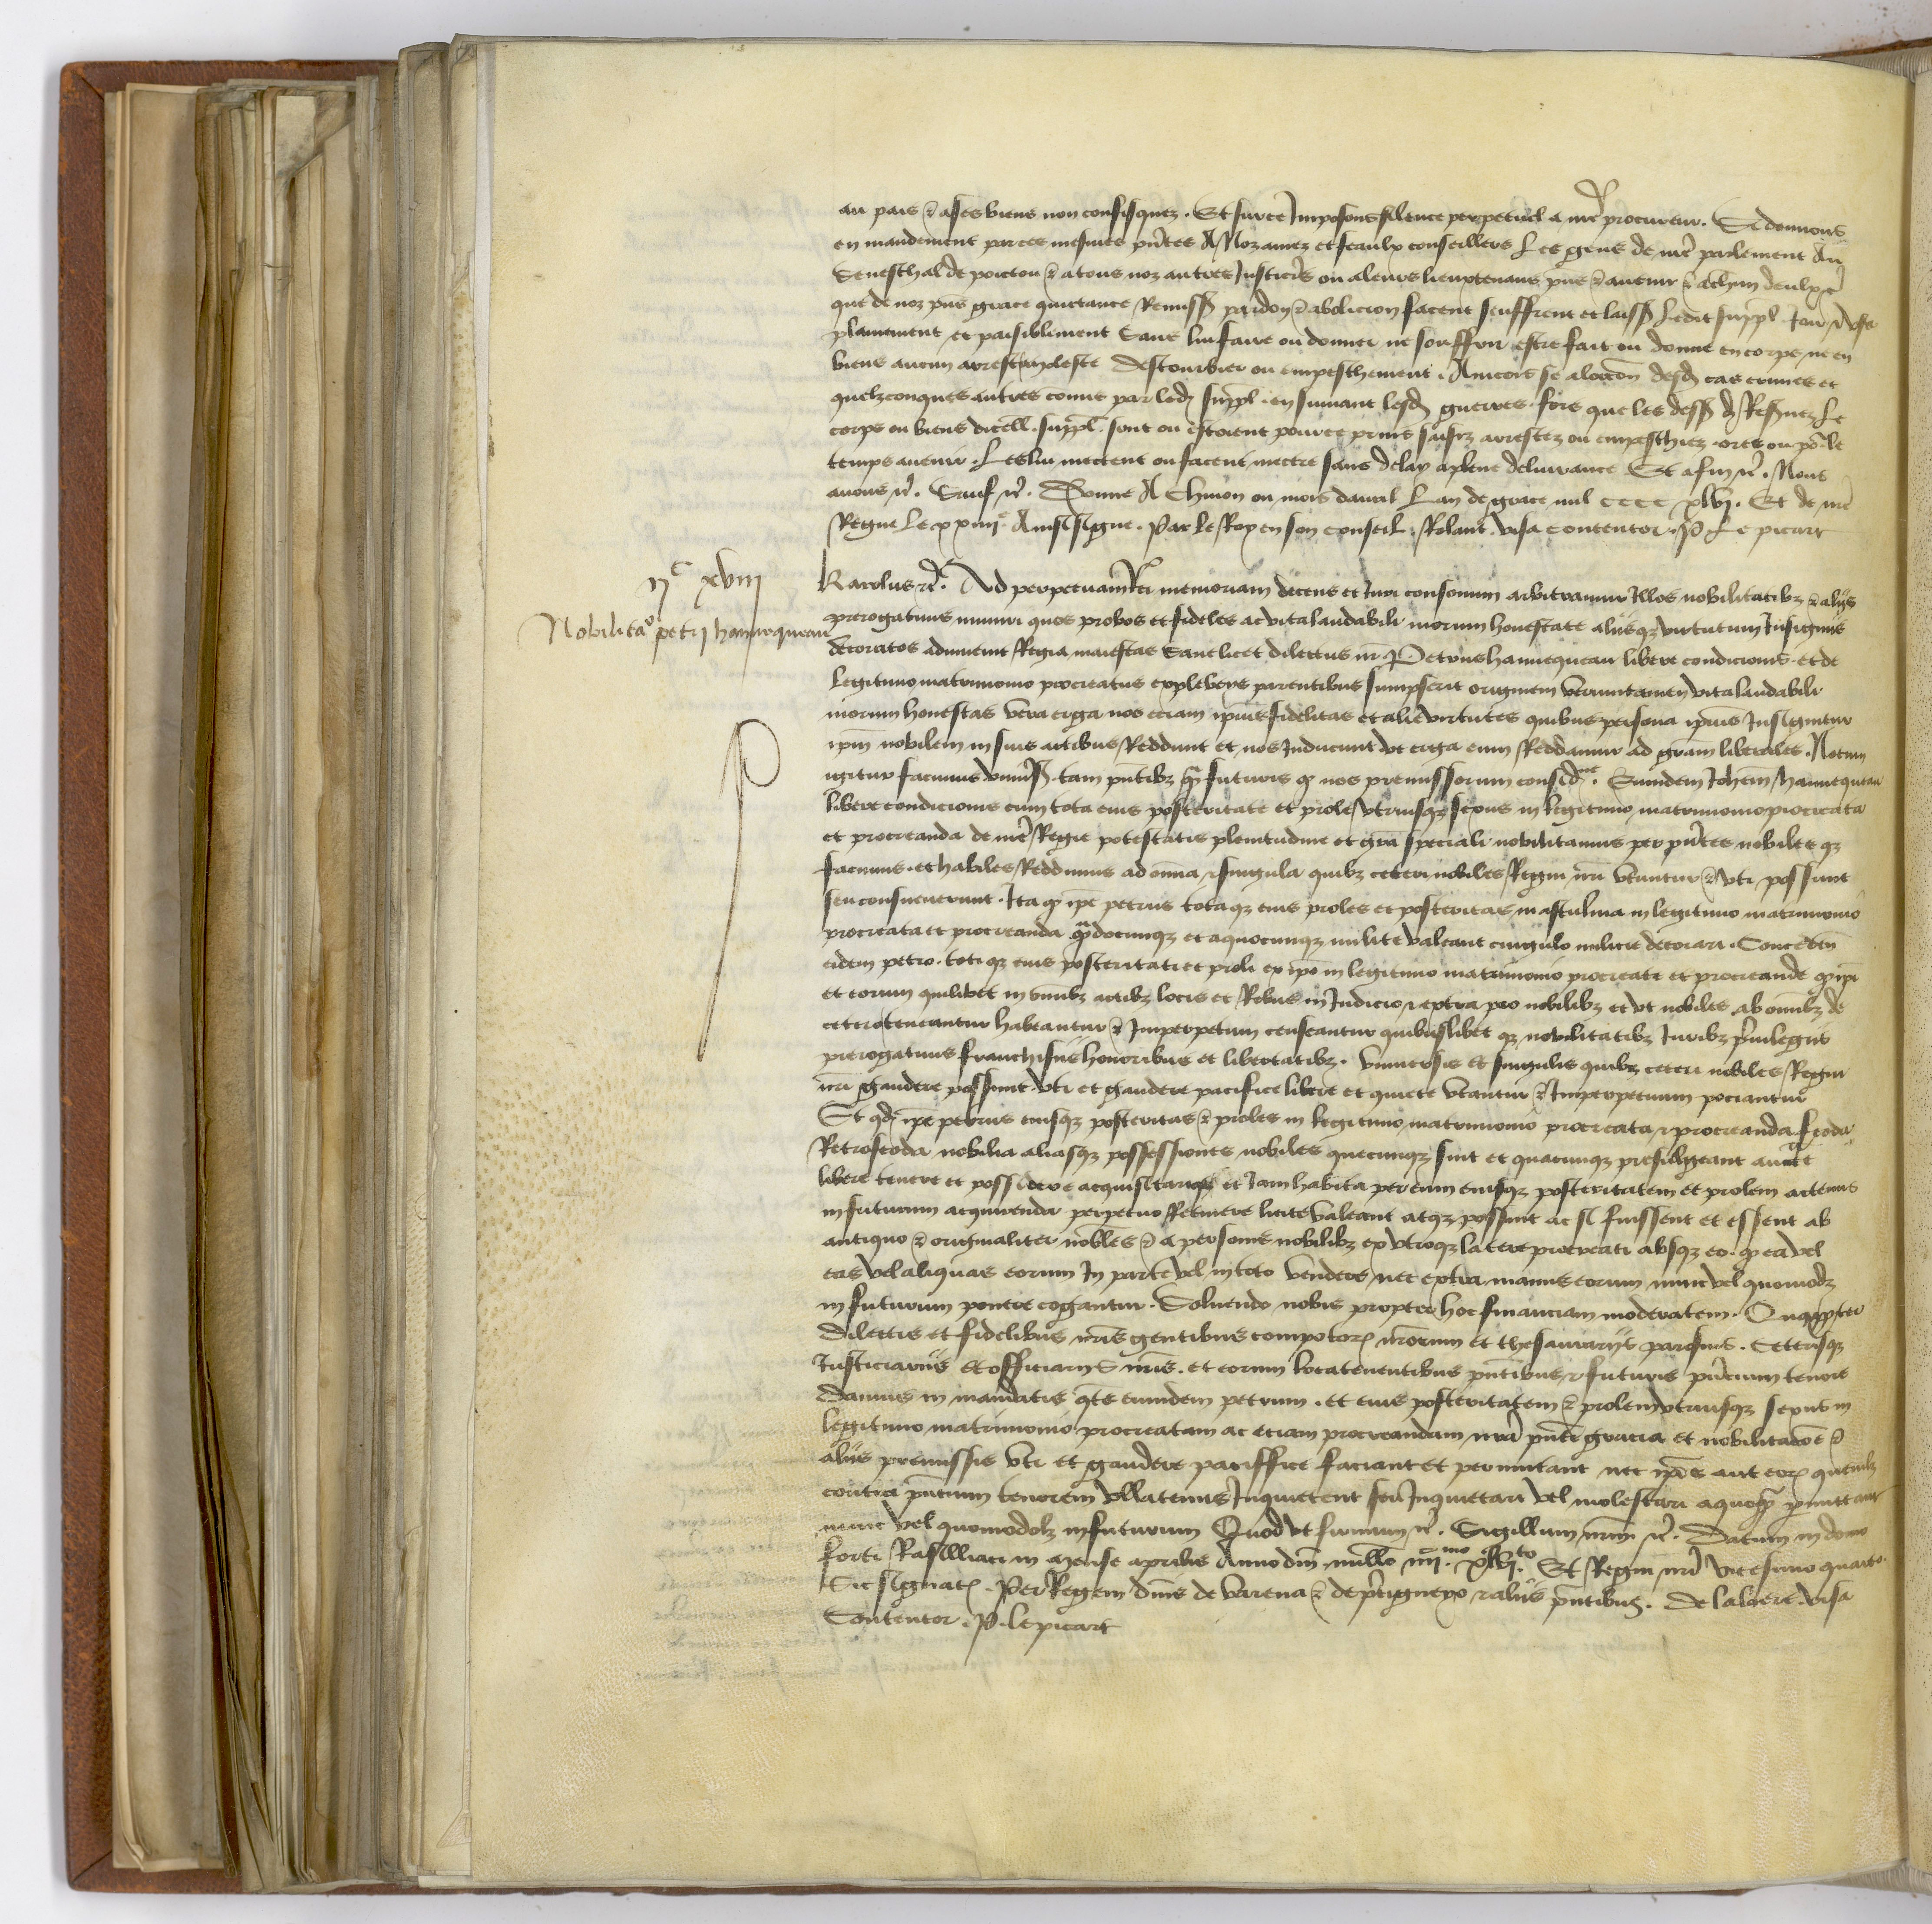 au pais & a ses biens non confisquez. Et sur ce Imposons silence perpetuel a nrẽ procureur. Si donnons
en mandement par ces mesmes pñtes A Noz amez et feaulx conseillers Les gens de nrẽ parlement Au
Seneschal de poictou & a tous noz autres Justiciẽs ou a leurs lieuxtenans pñs & auenir & a chũn deulx &c̃
que de noz pñs grace quictance Remissõ pardon & abolicion facent seuffrent et laissẽ Ledit suppl̃ Joir & vser
plainement et paisiblement Sans lui faire ou donner ne souffrir estre fait ou donne en corps ne en
biens aucun arrest moleste destourbier ou empeschement. Aincois se a locc̃on desd̃ cas crimes et
quelzconques autres cõmis par led̃ suppl̃. en suiuant lesd̃ guerres. fors que les dess̃ d̃ Reseruez Le
corps ou biens dicell̃. suppl̃. sont ou estoient pour ce prins saisiz arrestez ou empeschiez ores ou põ le
temps auenir. Les lui mectent ou facent mectre sans delay a plene deliurance Et afin &c̃. Nous
auons &c̃. Sauf &c̃. Donne A Chinon ou mois dauril Lan de grace mil cccc xlvj. Et de nrẽ
Regne Le xxiiijᵉ. Ainsi signe. Par le Roy en son conseil. Rolant. visa contentor. P Le picart
ijᶜ xviij
Nobilitaõ petrj hannequeau
Karolus &c̃. Ad perpetuam Rei memoriam decens et Juri consonum arbitramur Illos nobilitatibz & alijs
prerogatiuis muniri quos probos et fideles ac vita laudabili morum honestate alijsqz virtutum Insignijs
decoratos adinuenit Regia maiestas Sane licet dilectus nr̃. Petrus hannequeau libere condicionis. et de
legitimo matrimonio procreatus ex plebeys parentibus sumpserit originem Veruntamen vita laudabili
morum honestas vera erga nos eciam ipĩus fidelitas et alie virtutes quibus persona ipĩus Insignitur
ipm̃ nobilem in suis actibus Reddunt et nos Inducunt vt erga eum Reddamur ad grãm liberales. Notum
igitur facimus vniuẽsis. tam pñtibz qm̃ futuris q̃ nos premissorum considⁿᵉ. Eumdem Joheñ hannequeau
libere condicionis cum tota eius posteritate et prole vtriusqz sexus in legitimo matrimonio procreata
et procreanda de nrẽ Regie potestatis plenitudine et grã speciali nobilitamus per pñtes nobiles qz
facimus. et habiles Reddimus ad omnia & singula quibz ceteri nobiles Regni nrĩ vtuntur & vti possunt
seu consueuerunt. Ita q̃ ipẽ petrus totaqz eius proles et posteritas masculina in legitimo matrimonio
procreata et procreanda q̃ndocunqz et a quocunqz milite valeant cingulo milicie decorari. Conceden̄
eidem petro. totiqz eius posteritati et proli ex ipõ in legitimo matrimonio procreate et procreande q̃ ipĩ
et eorum quilibet in omĩbz actibz locis et Rebus in Judicio & extra pro nobilibz et vt nobiles ab omĩbz de
cetero teneantur habeantur & Imperpetuum censeantur quibuslibet qz nobilitatibz Juribz priuilegijs
prerogatiuis franchisijs honoribus et libertatibz. vniuersis et singulis quibz ceteri nobiles Regni
nrĩ gaudere possunt vti et gaudere pacifice libere et quiete vtantur & Imperpetuum pociantur
Et qd̃ ipẽ petrus eiusqz posteritas & proles in legitimo matrimonio procreata & procreanda feoda
Retrofeoda nobilia aliasqz possessiones nobiles quecunqz sint et quacunqz prefulgeant auc̃te
libere tenere et possidere acquisitaqz et Jam habita per eum eiusqz posteritatem et prolem actenus
in futurum acquirenda perpetuo Retinere licite valeant atqz possint ac si fuissent et essent ab
antiquo & originaliter nobiles & a personis nobilibz ex vtroqz latere procreati absqz eo. q̃ ea vel
eas vel aliquas eorum In parte vel in toto vendere nec extra manus eorum nunc vel quomodolz
in futurum ponere cogantur. Soluendo nobis propter hoc financiam moderatam. Quapp̃ter
Dilectis et fidelibus nrĩs gentibus compotorũ nrõrum et thesaurarijs parisius. Ceterisqz
Justiciarijs Et officiarijs nrĩs. et eorum locatenentibus pñtibus & futuris pñcium tenore
damus in mandatis q̃ts eumdem petrum. et eius posteritatem & prolem vtriusqz sexus in
legitimo matrimonio procreatam ac etiam procreandam nrã pñti gracia et nobilitacõe &
alijs premissis vti et gaudere paciffice faciant et permittant nec ip̃os aut eorũ quemlz
contra pñtium tenorem vllatenus Inquietent seu Inquietari vel molestari a quoq̃ p̃mittant
nunc vel quomodolz in futurum Quod vt firmum &c̃. Sigillum nrm̃ &c̃. Datum in domo
forti Rasilliaci in mense aprilis Anno dnĩ millõ iiijᵐᵒ. xlvjᵗᵒ. Et Regni nrĩ vicesimo quarto.
Sic signatũ. Per Regem dnĩs de varena & de p̃tigneyo & alijs pñtibus. De la loere. visa
Contentor. P. le picart